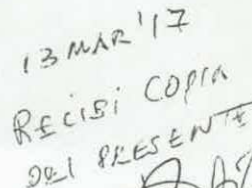 13 MAR '17
RECIBI COPIA
DEL PRESENTE